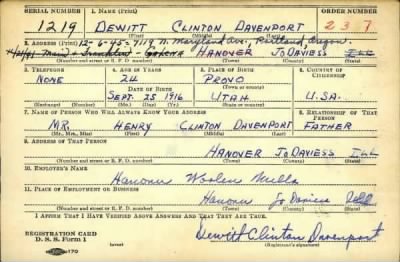 SERIAL NUMBER 1. NAME (Print) ORDER NUMBER
1219 DEWITT CLINTON DAVENPORT 237
(First) (Middle) (Last)
2. ADDRESS (Print) 12-6-45-7119 N. Maryland Ave, Portland, Oregon.
Main HANOVER JO DAVIESS ILL
(Number and street or R. F. D. number) (Town) (County) (State)
3. TELEPHONE 4. AGE IN YEARS 5. PLACE OF BIRTH 6. COUNTRY OF CITIZENSHIP
NONE 24 PROVO
DATE OF BIRTH
SEPT. 25 1916 UTAH U.S.A.
(Exchange) (Number) (Mo.) (Day) (Yr.) (State or country)
7. NAME OF PERSON WHO WILL ALWAYS KNOW YOUR ADDRESS 8. RELATIONSHIP OF THAT PERSON
MR. HENRY CLINTON DAVENPORT FATHER
(Mr., Mrs., Miss) (First) (Middle) (Last)
9. ADDRESS OF THAT PERSON
HANOVER JO DAVIESS ILL
(Number and street or R. F. D. number) (Town) (County) (State)
10. EMPLOYER'S NAME
Hanover Woolen Mills
11. PLACE OF EMPLOYMENT OR BUSINESS
Hanover Jo Daviess Ill
(Number and street or R. F. D. number) (Town) (County) (State)
I AFFIRM THAT I HAVE VERIFIED ABOVE ANSWERS AND THAT THEY ARE TRUE.
REGISTRATION CARD
D. S. S. Form 1 Dewitt Clinton Davenport
(Registrant's signature)